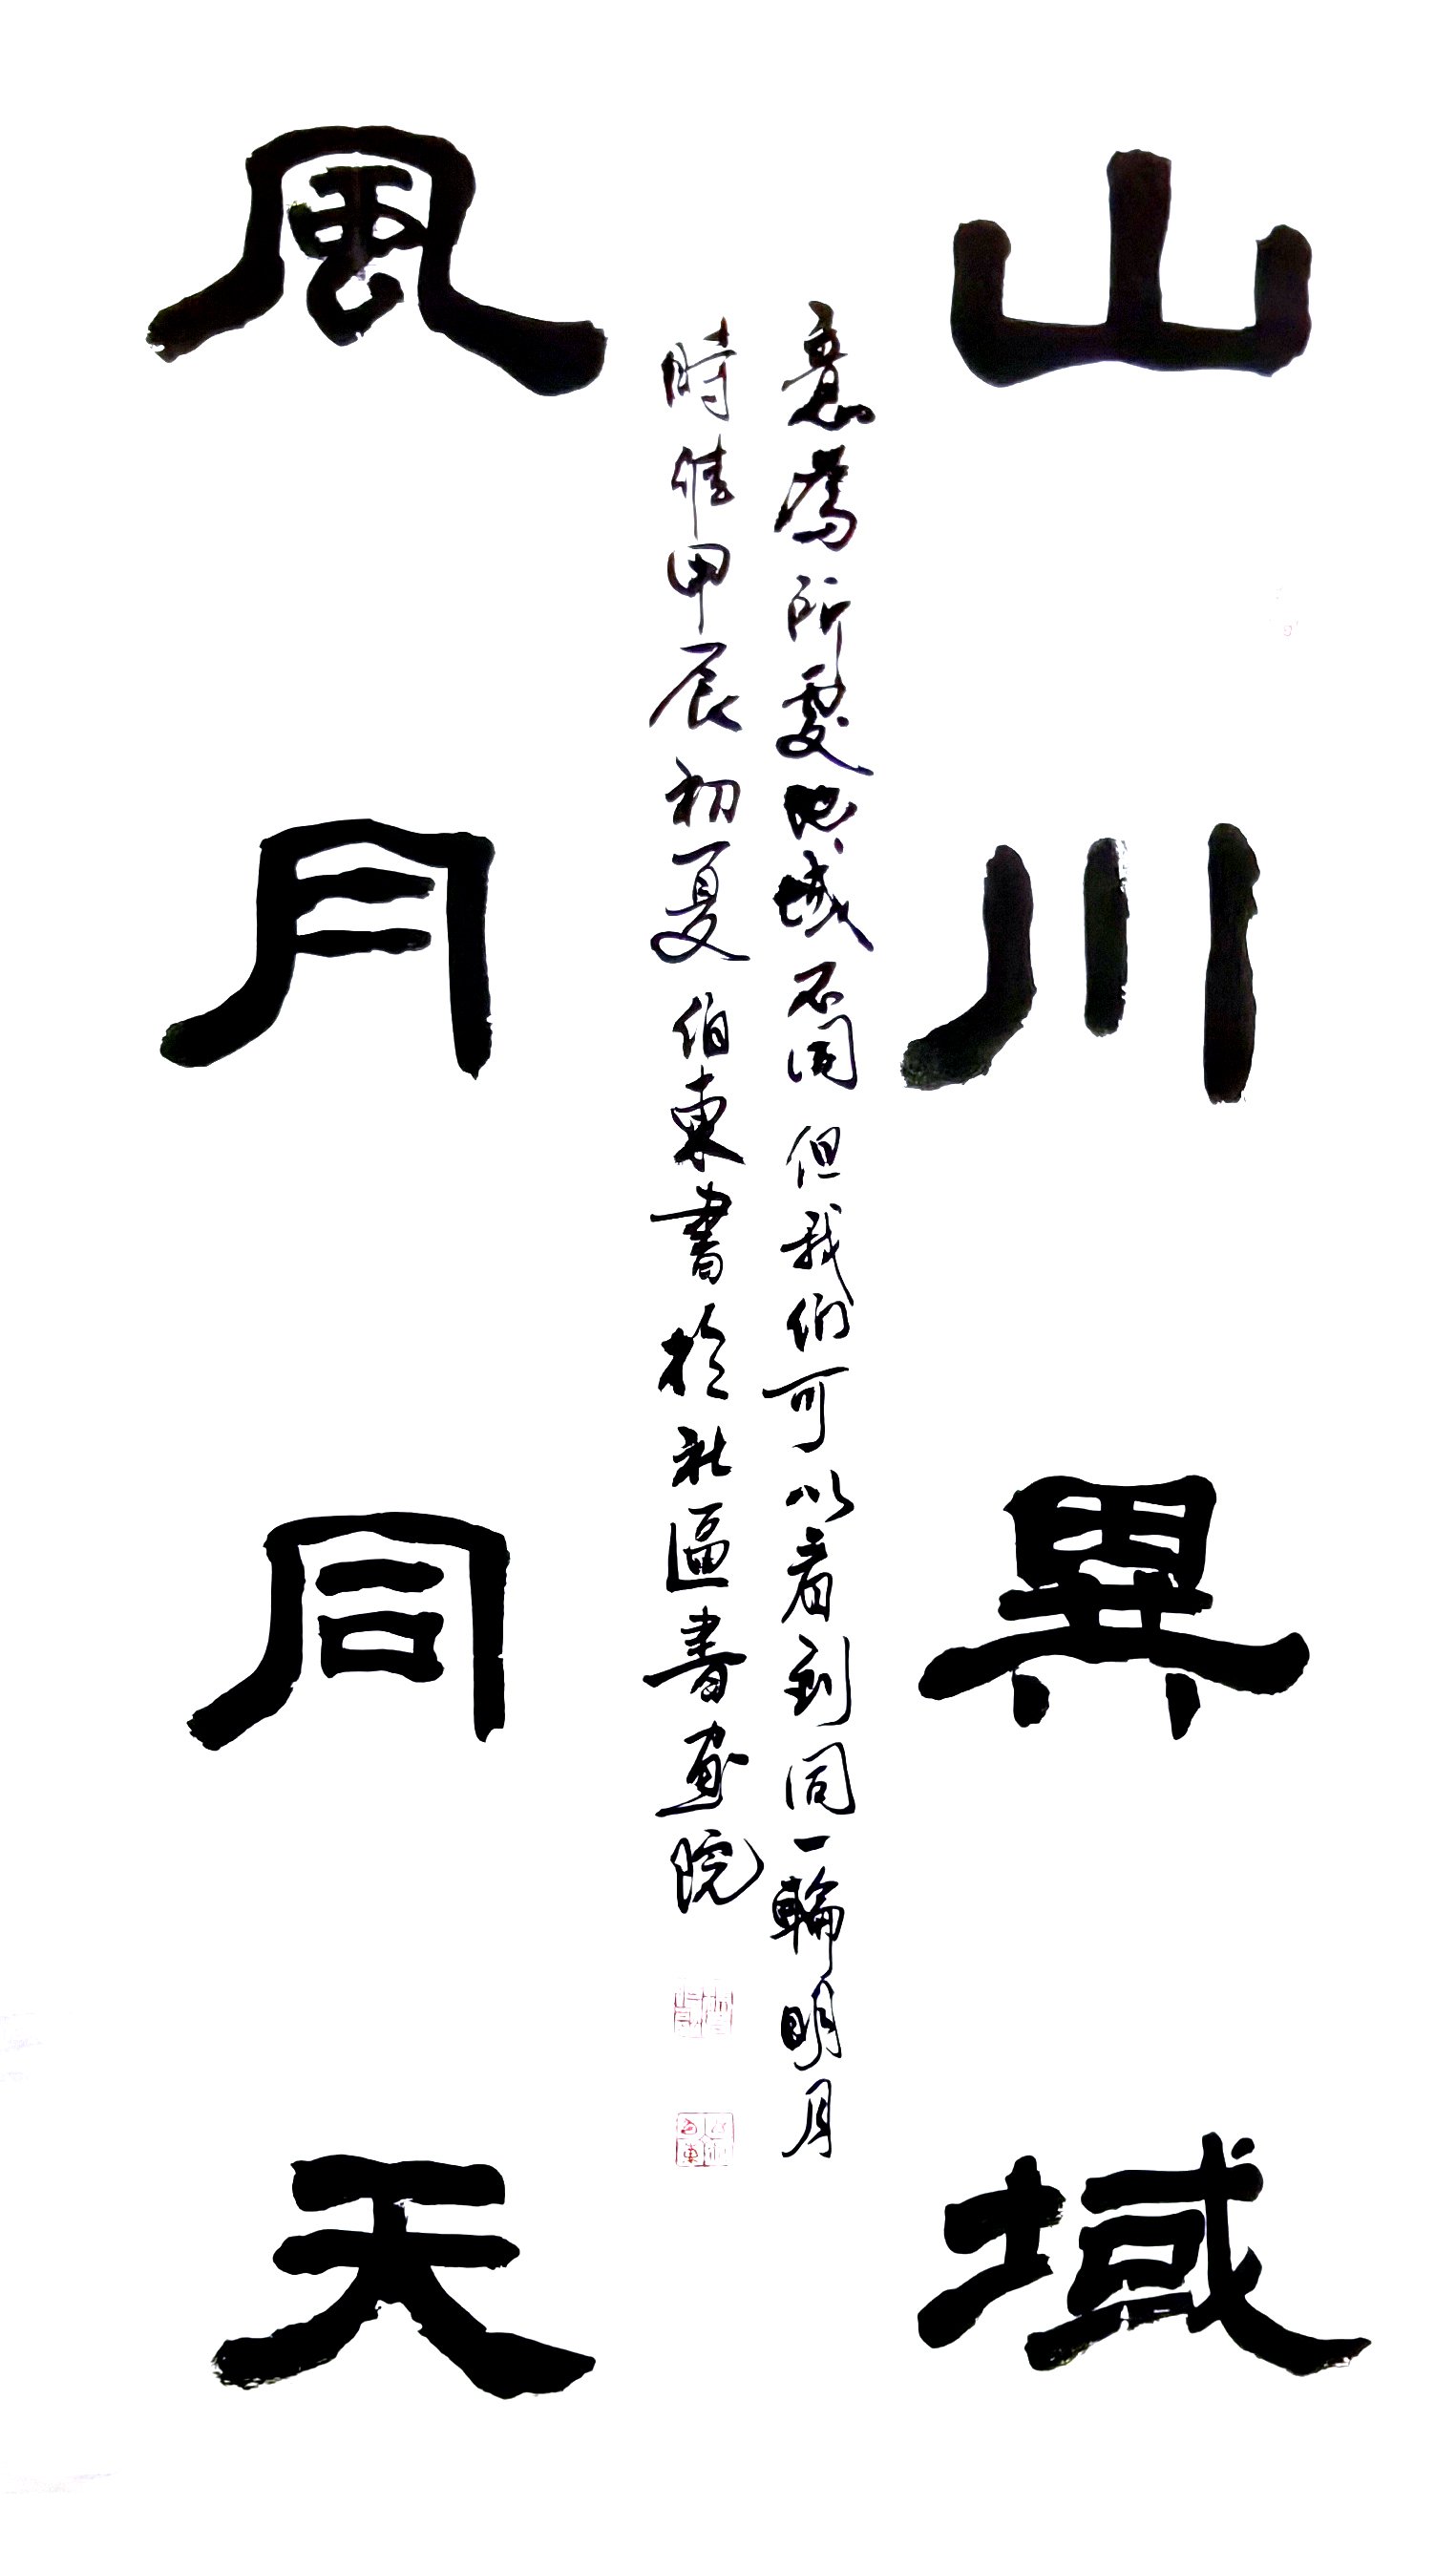 山川異域
意為所處地域不同但我们可以看到同一輪明月
時惟甲辰初夏伯東書於社區書画院
風月同天